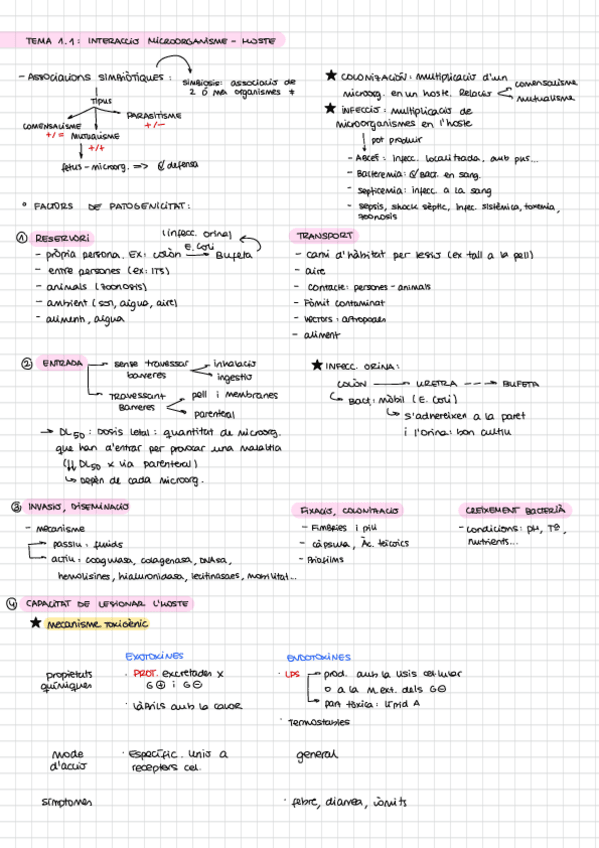 TEMA 1.1: INTERACCIÓ MICROORGANISME - HOSTE
- ASSOCIACIONS SIMBIÒTIQUES:
simbiosis: associació de
2 ó més organismes *
TIPUS
COMENSALISME
+/=
MUTUALISME
+/+
PARASITISME
+/-
fetus - microorg. => defensa
★ COLONIZACIÓN: multiplicació d'un
microorg. en un hoste. Relació
comensalisme
mutualisme
★ INFECCIÓ: multiplicació de
microorganismes en l'hoste
pot produir
- ABCÉS: infecc. localitzada, amb pus...
- Bacteremia: bact. en sang.
- septicemia: infecc. a la sang
- sepsis, shock sèptic, infec. sistèmica, toxemia,
zoonosis
° FACTORS DE PATOGENICITAT:
① RESERVORI
(infecc. orina)
- pròpia persona. EX: colòn E. Coli Bufeta
- entre persones (ex: ITS)
- animals (zoonosis)
- ambient (sòl, aigua, aire)
- aliments, aigua
TRANSPORT
- canvi d'hàbitat per lesió (ex tall a la pell)
- aire
- contacte: persones - animals
- Fòmit contaminat
- vectors: artropodes
- aliment
② ENTRADA
sense travessar
barreres
inhalació
ingestió
TRAVESSANT
BARRERES
pell i membranes
parenteral
→ DL50: Dosis letal: quantitat de microorg.
que han d'entrar per provocar una malaltia
(↓↓ DL50 x via parenteral)
↳ Depèn de cada microorg.
★ INFECC. ORINA:
COLÒN → URETRA --→ BUFETA
↳ Bact. mòbil (E. coli)
↳ s'adhereixen a la paret
i l'orina: bon cultiu
③ INVASIÓ, DISEMINACIÓ
- mecanisme
passiu: fluids
actiu: coagulasa, colagenasa, DNAsa,
hemolisines, hialuronidasa, lecitinasaes, mobilitat...
FIXACIÓ, COLONITZACIÓ
- Fímbries i pili
- càpsula, Àc. teicoics
- Biofilms
CREIXEMENT BACTERIÀ
- condicions: pH, Tª,
nutrients...
④ CAPACITAT DE LESIONAR L'HOSTE
★ MECANISME TOXIGÈNIC
EXOTOXINES
ENDOTOXINES
propietats
químiques
· PROT. excretades x
G⊕ i G⊖
· làbils amb la calor
· LPS
prod. amb la lisis cel·lular
o a la m. ext. dels G⊖
part tòxica: lípid A
· Termostables
mode
d'acció
· Específic. Unió a
receptors cel.
general
símptomes
· febre, diarrea, vòmits